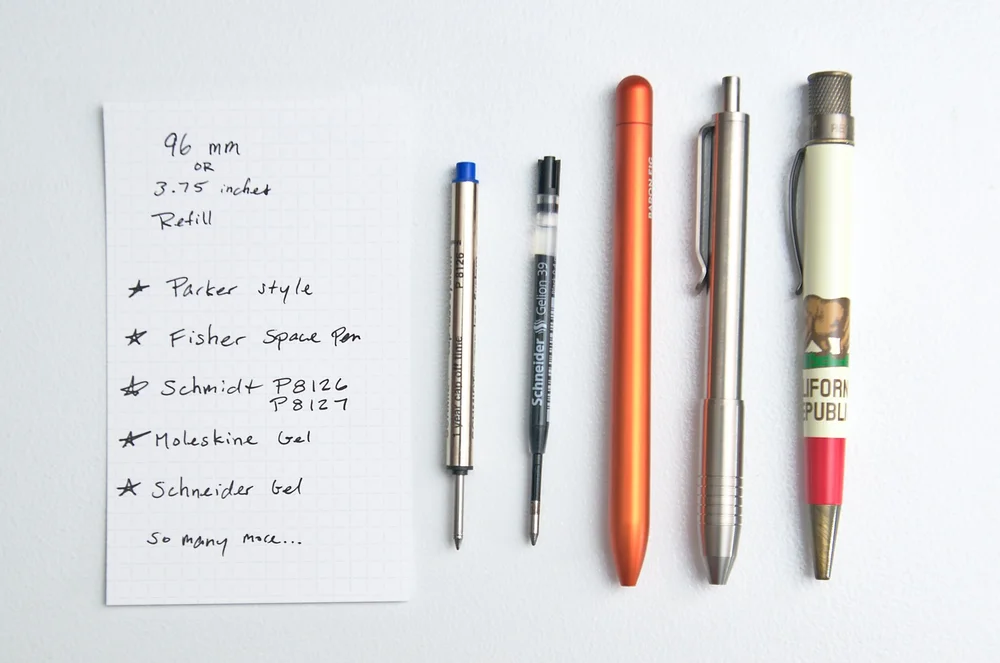 96 mm
OR
3.75 inches
Refill
★ Parker style
★ Fisher Space Pen
★ Schmidt P8126
P8127
★ Moleskine Gel
★ Schneider Gel
So many more...
P 8126
1 year cap off time
Schneider Gelion 39
BARON FIG
LIFORN
EPUBLI